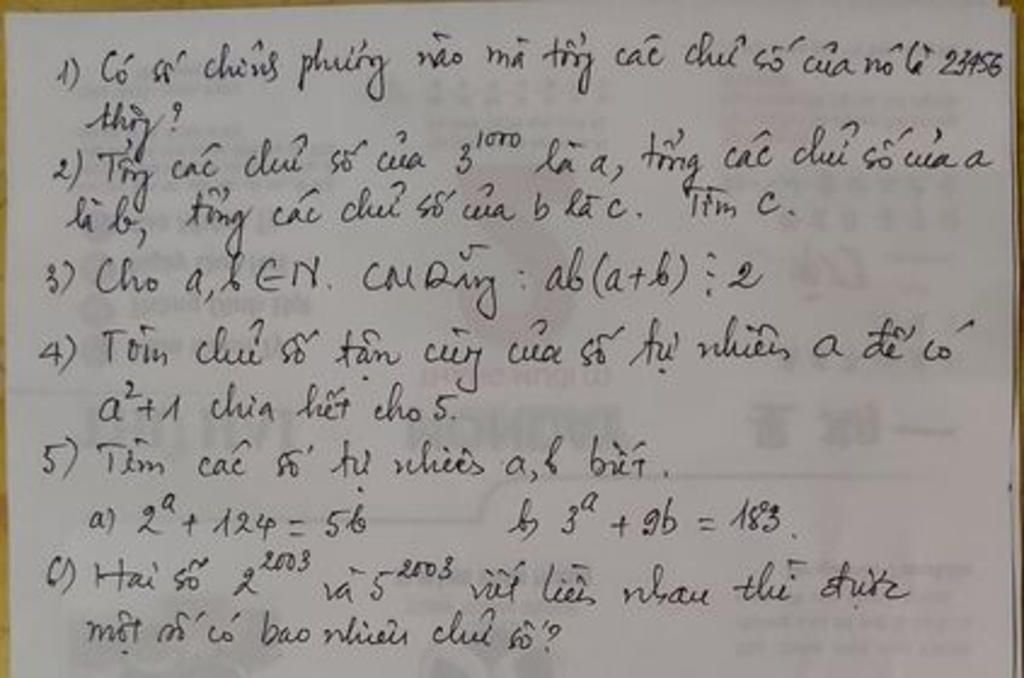 1) Có số chính phương nào mà tổng các chữ số của nó là 23456
không?
2) Tổng các chữ số của 3^1000 là a, tổng các chữ số của a
là b, tổng các chữ số của b là c. Tìm c.
3) Cho a, b ∈ N. CMRằng : ab(a+b) ⋮ 2
4) Tìm chữ số tận cùng của số tự nhiên a để có
a²+1 chia hết cho 5.
5) Tìm các số tự nhiên a, b biết.
a) 2^a + 124 = 5b b) 3^a + 9b = 183.
6) Hai số 2^2003 và 5^2003 viết liền nhau thì được
một số có bao nhiêu chữ số?